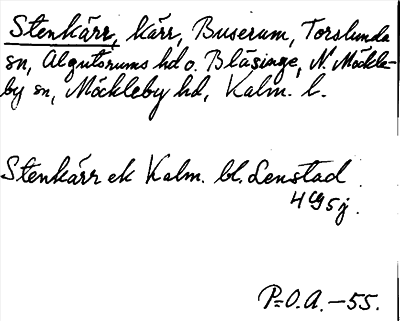 Stenkärr, kärr, Buserum, Torslunda
sn, Algutsrums hd o. Bläsinge, N. Möckle-
by sn, Möckleby hd, Kalm. l.
Stenkärr ek Kalm. bl. Lenstad
4 G 5 j.
P-O.A. -55.